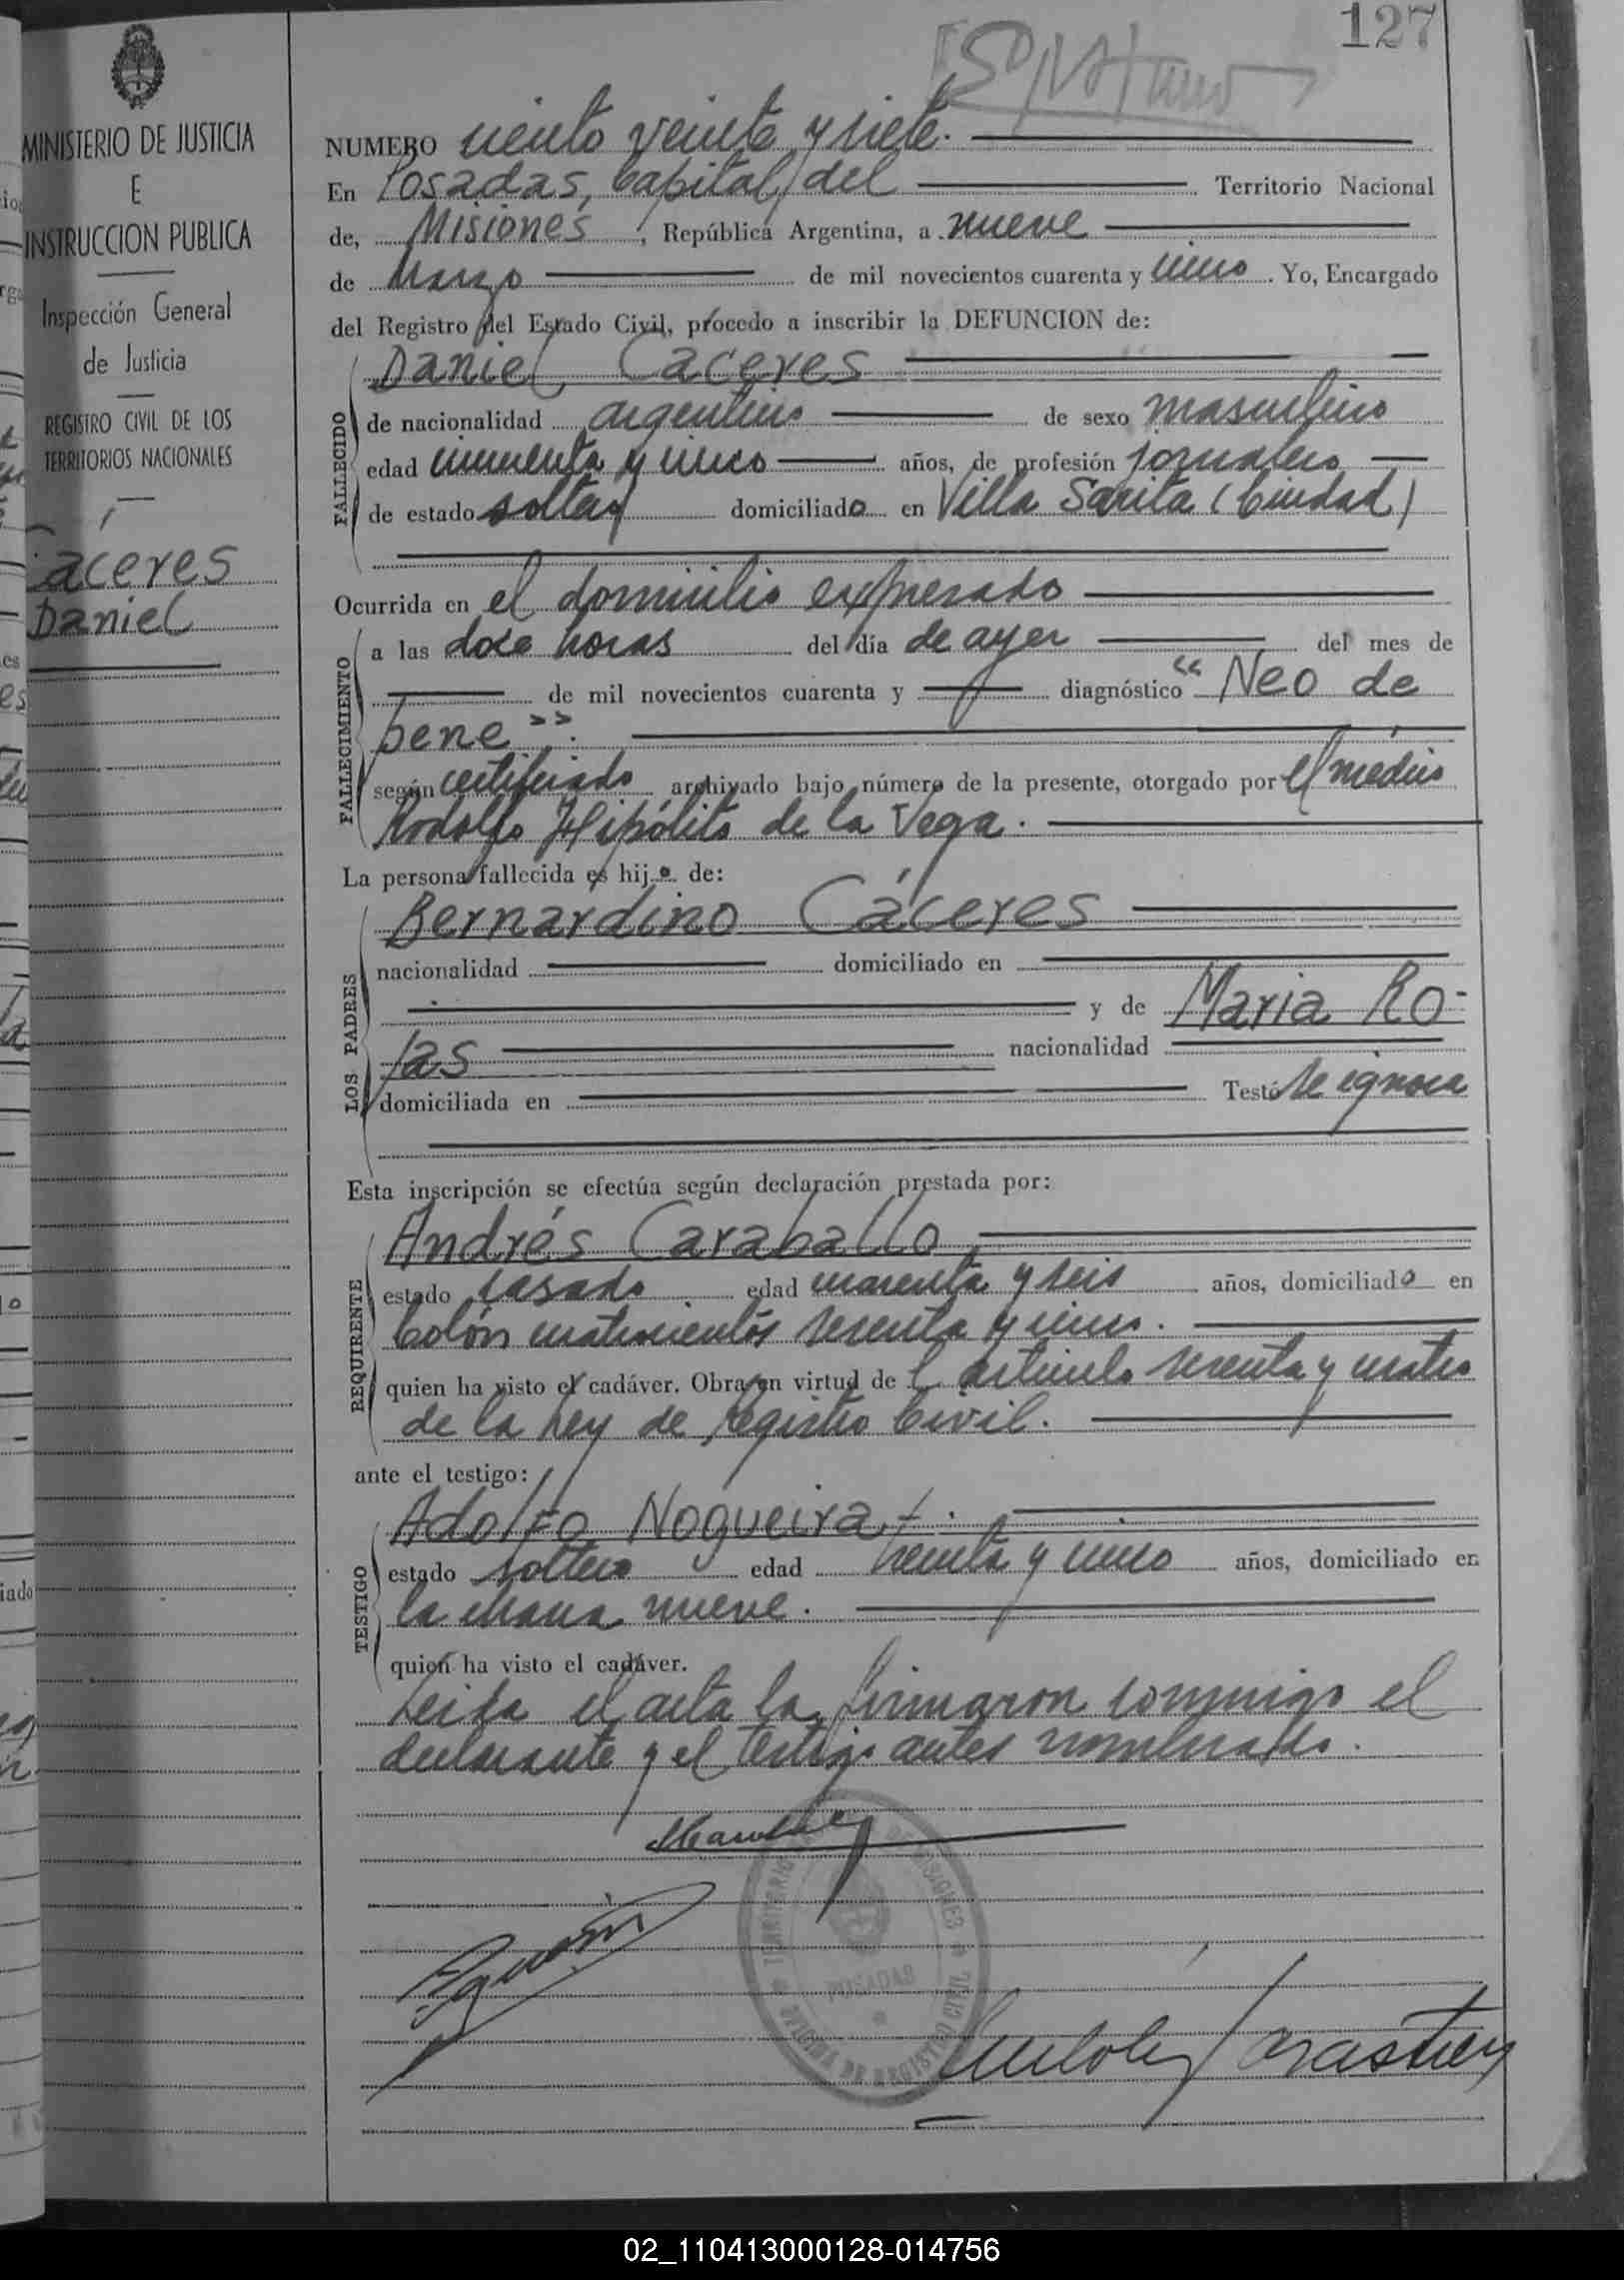 127
NUMERO ciento veinte y siete.
En Posadas, Capital del Territorio Nacional
de, Misiones, República Argentina, a nueve
de Marzo de mil novecientos cuarenta y uno. Yo, Encargado
del Registro del Estado Civil, procedo a inscribir la DEFUNCION de:
Daniel Caceres
FALLECIDO
de nacionalidad argentino de sexo masculino
edad cincuenta y cinco años, de profesión jornalero
de estado soltero domiciliado en Villa Sarita (Ciudad)
Ocurrida en el domicilio expresado
FALLECIMIENTO
a las doce horas del día de ayer del mes de
de mil novecientos cuarenta y diagnóstico "Neo de
pene".
según certificado archivado bajo número de la presente, otorgado por el médico
Rodolfo Hipólito de la Vega.
La persona fallecida es hijo de:
LOS PADRES
Bernardino Cáceres
nacionalidad domiciliado en
y de Maria Ro-
jas nacionalidad
domiciliada en Testó se ignora
Esta inscripción se efectúa según declaración prestada por:
REQUIRENTE
Andrés Caraballo
estado casado edad cuarenta y seis años, domiciliado en
Colón cuatrocientos sesenta y cinco.
quien ha visto el cadáver. Obra en virtud del artículo sesenta y cuatro
de la Ley de Registro Civil.
ante el testigo:
TESTIGO
Adolfo Nogueira
estado soltero edad treinta y cinco años, domiciliado en
la chacra nueve.
quien ha visto el cadáver.
Leída el acta la firmaron conmigo el
declarante y el testigo antes nombrado.
POSADAS
MINISTERIO DE JUSTICIA
E
INSTRUCCION PUBLICA
Inspección General
de Justicia
REGISTRO CIVIL DE LOS
TERRITORIOS NACIONALES
Cáceres
Daniel
02_110413000128-014756